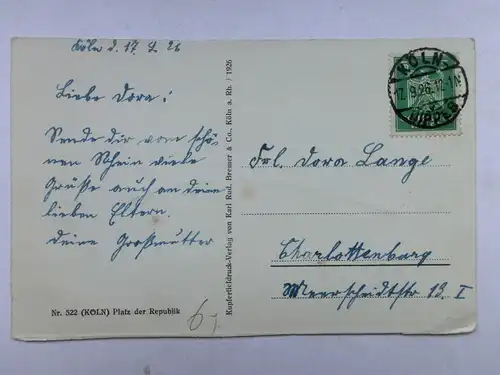 Köln d. 17. 9. 26
Liebe Dora!
Sende dir vom schö-
nen Rhein viele
Grüße auch an deine
lieben Eltern.
Deine Großmutter
Nr. 522 (KÖLN) Platz der Republik
6,
Kupfertiefdruck-Verlag von Karl Rud. Bremer & Co., Köln a. Rh. / 1926
KÖLN-
17.9.26.12-1N
NIPPES
Frl. Dora Lange
Charlottenburg
Meerscheidtstr 13. I